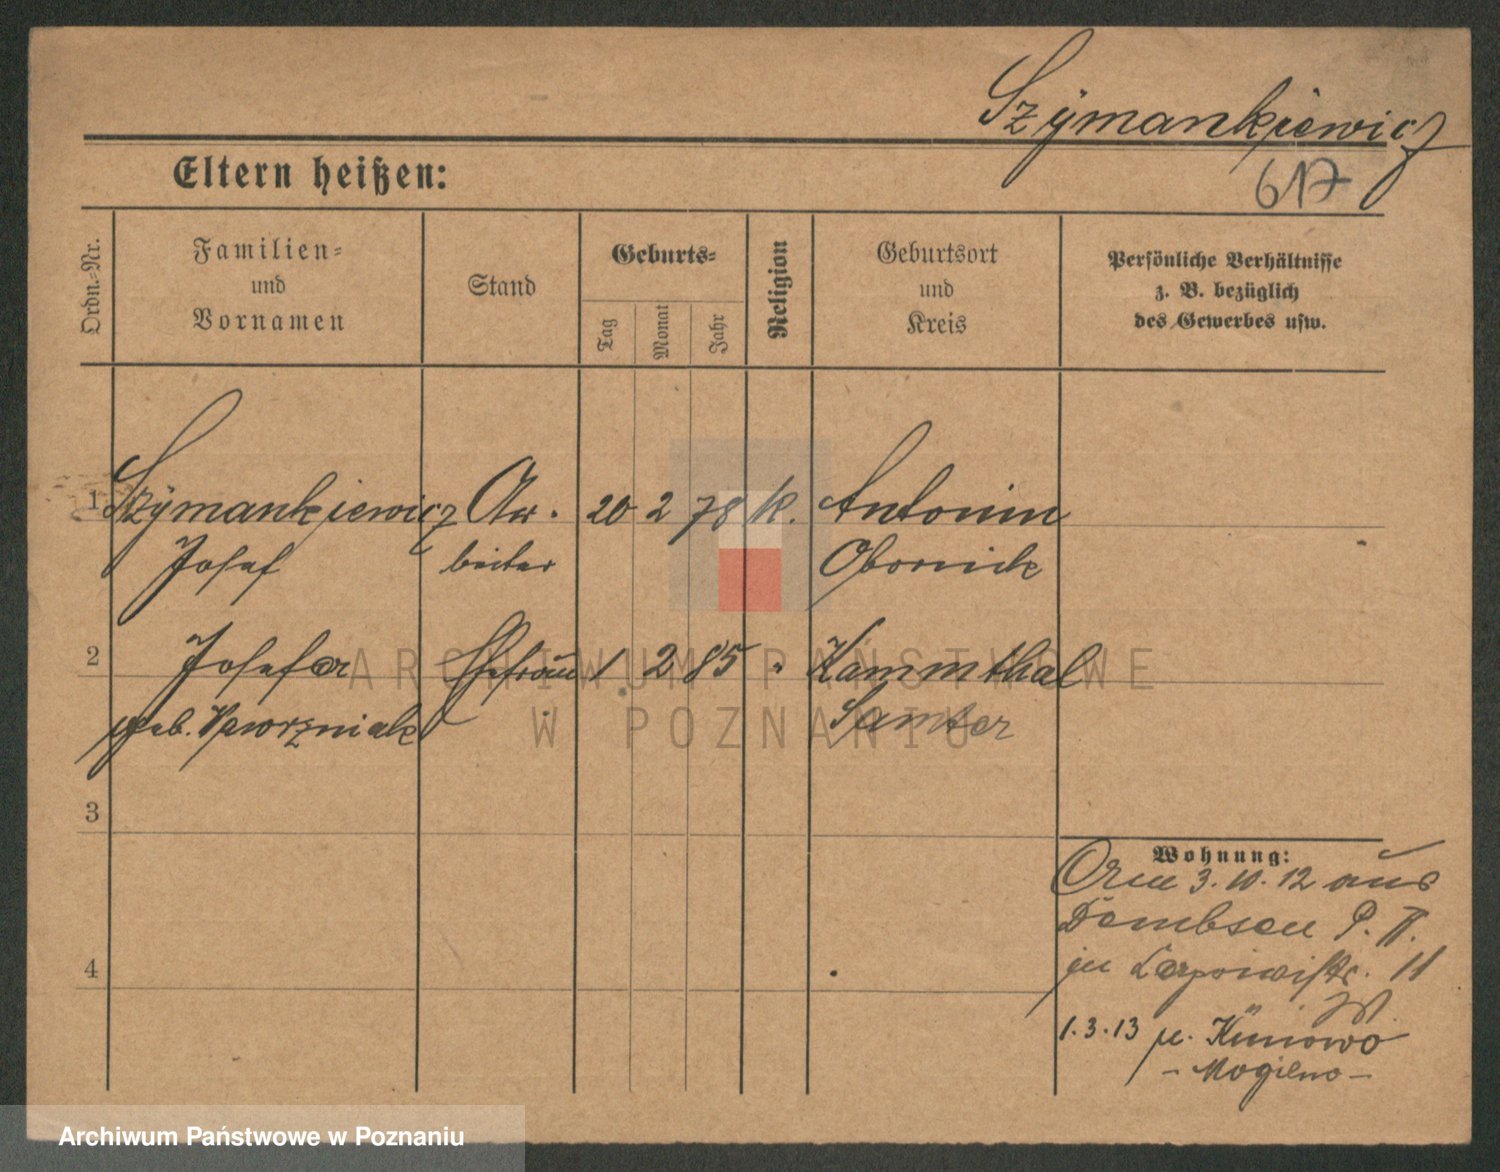 Szymankiewicz
617
Eltern heißen:
Ordn.-Nr.
Familien-
und
Vornamen
Stand
Geburts-
Tag
Monat
Jahr
Religion
Geburtsort
und
Kreis
Persönliche Verhältnisse
z. B. bezüglich
des Gewerbes usw.
1 Szymankiewicz Ar- 20 2 78 k. Antonin
Josef beiter Obornick
2 Josefa Ehefrau 1 2 85 " Kammthal
geb. Wawrzniak Samter
3
4
Wohnung:
3. 10. 12 aus
Dembsen P. II.
in 11
1.3.13 n.
- Mogilno -
ARCHIWUM PAŃSTWOWE
W POZNANIU
Archiwum Państwowe w Poznaniu